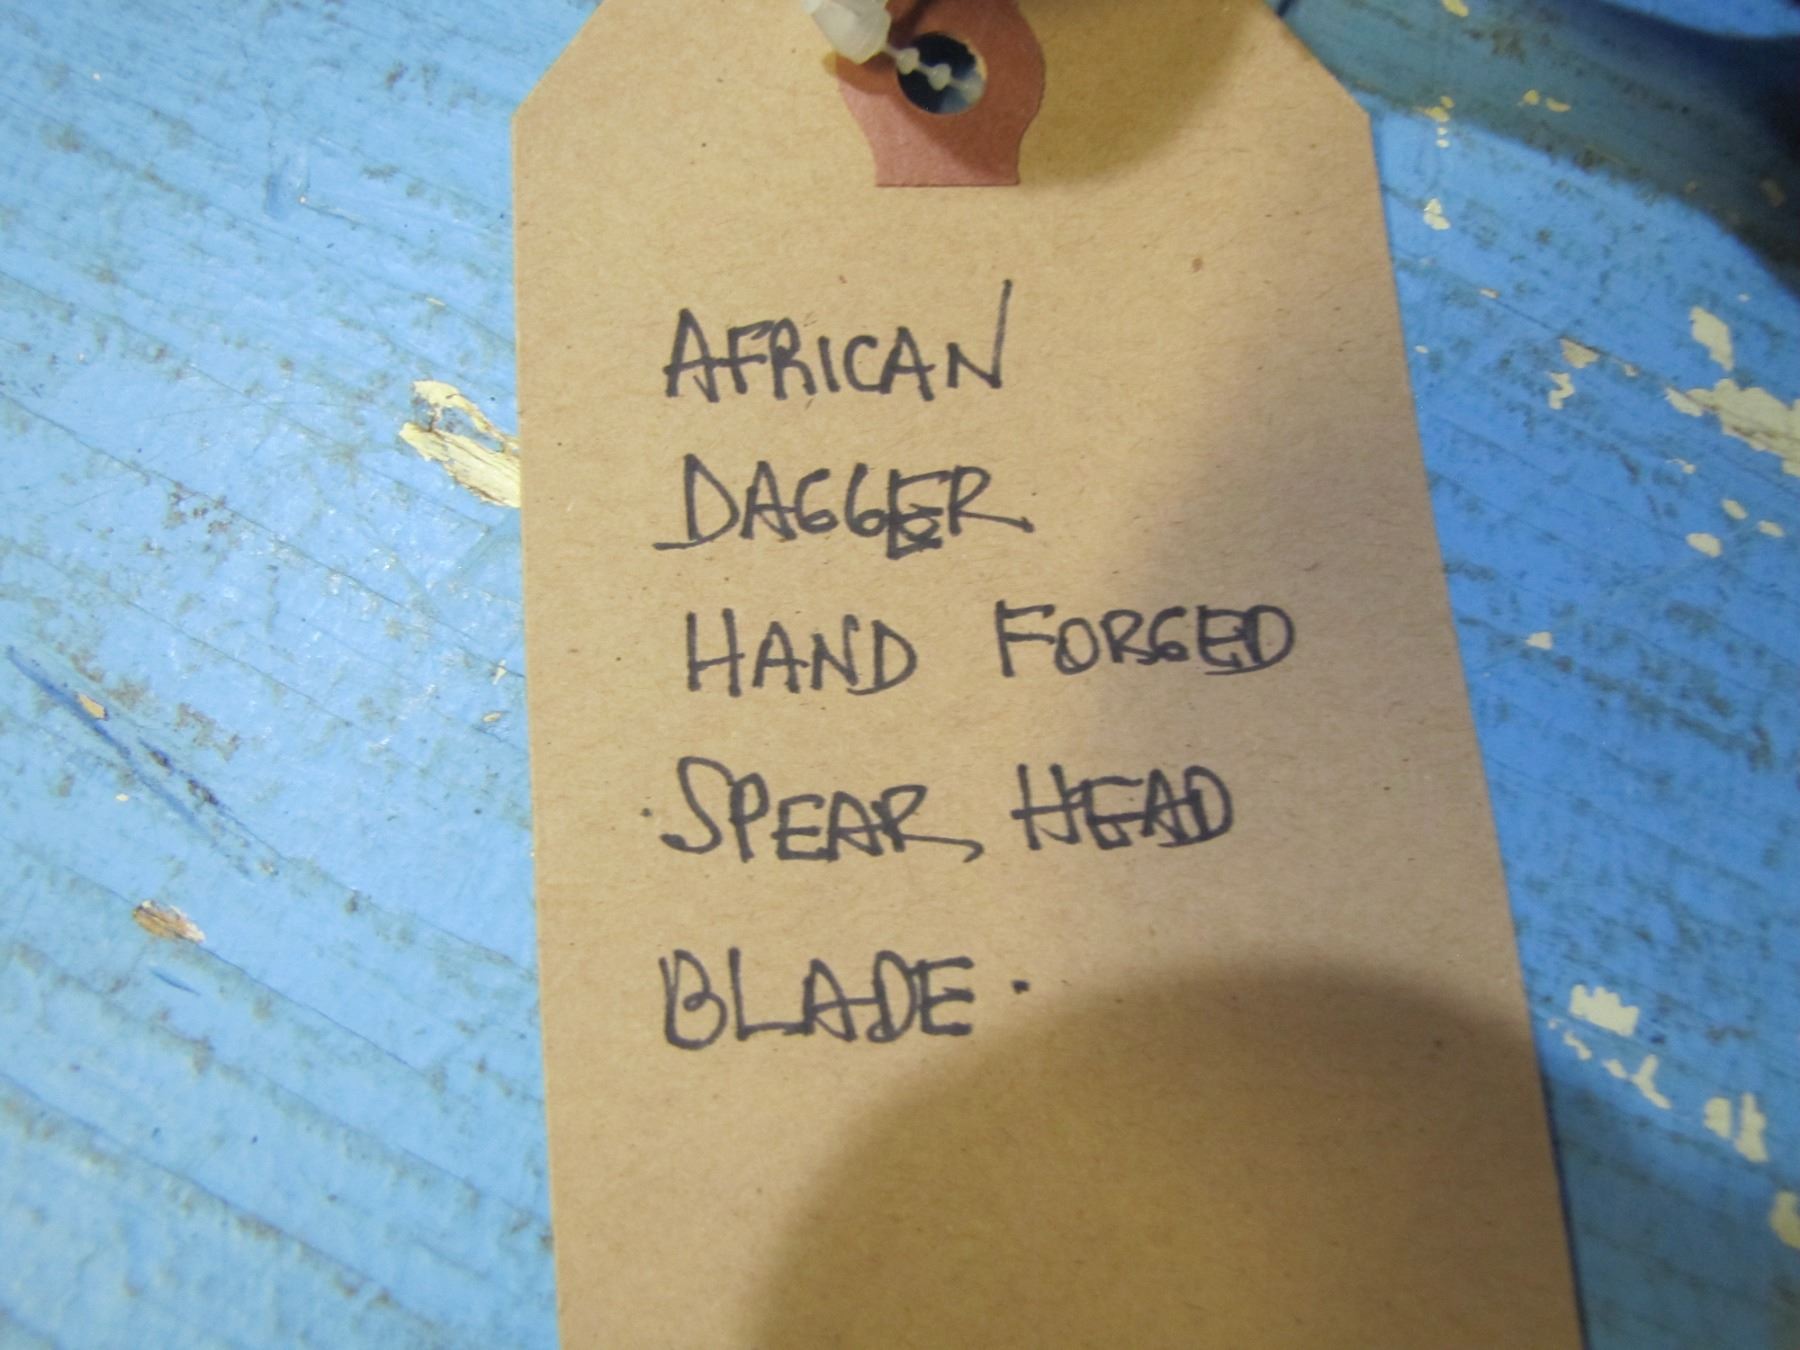 AFRICAN
DAGGER
HAND FORGED
SPEAR HEAD
BLADE.